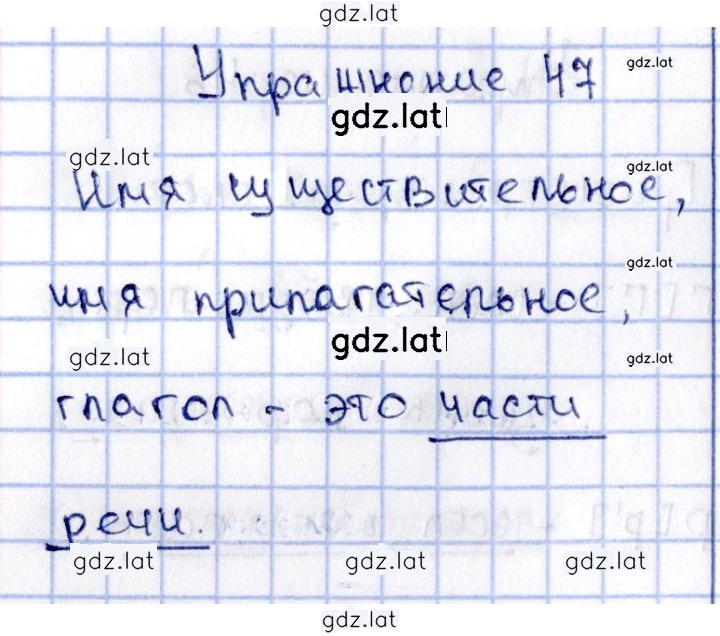 gdz.lat
Упражнение 47
gdz.lat
gdz.lat
gdz.lat
gdz.lat
Имя существительное,
gdz.lat
имя прилагательное,
gdz.lat
gdz.lat
gdz.lat
глагол - это части
речи.
gdz.lat
gdz.lat
gdz.lat
gdz.lat